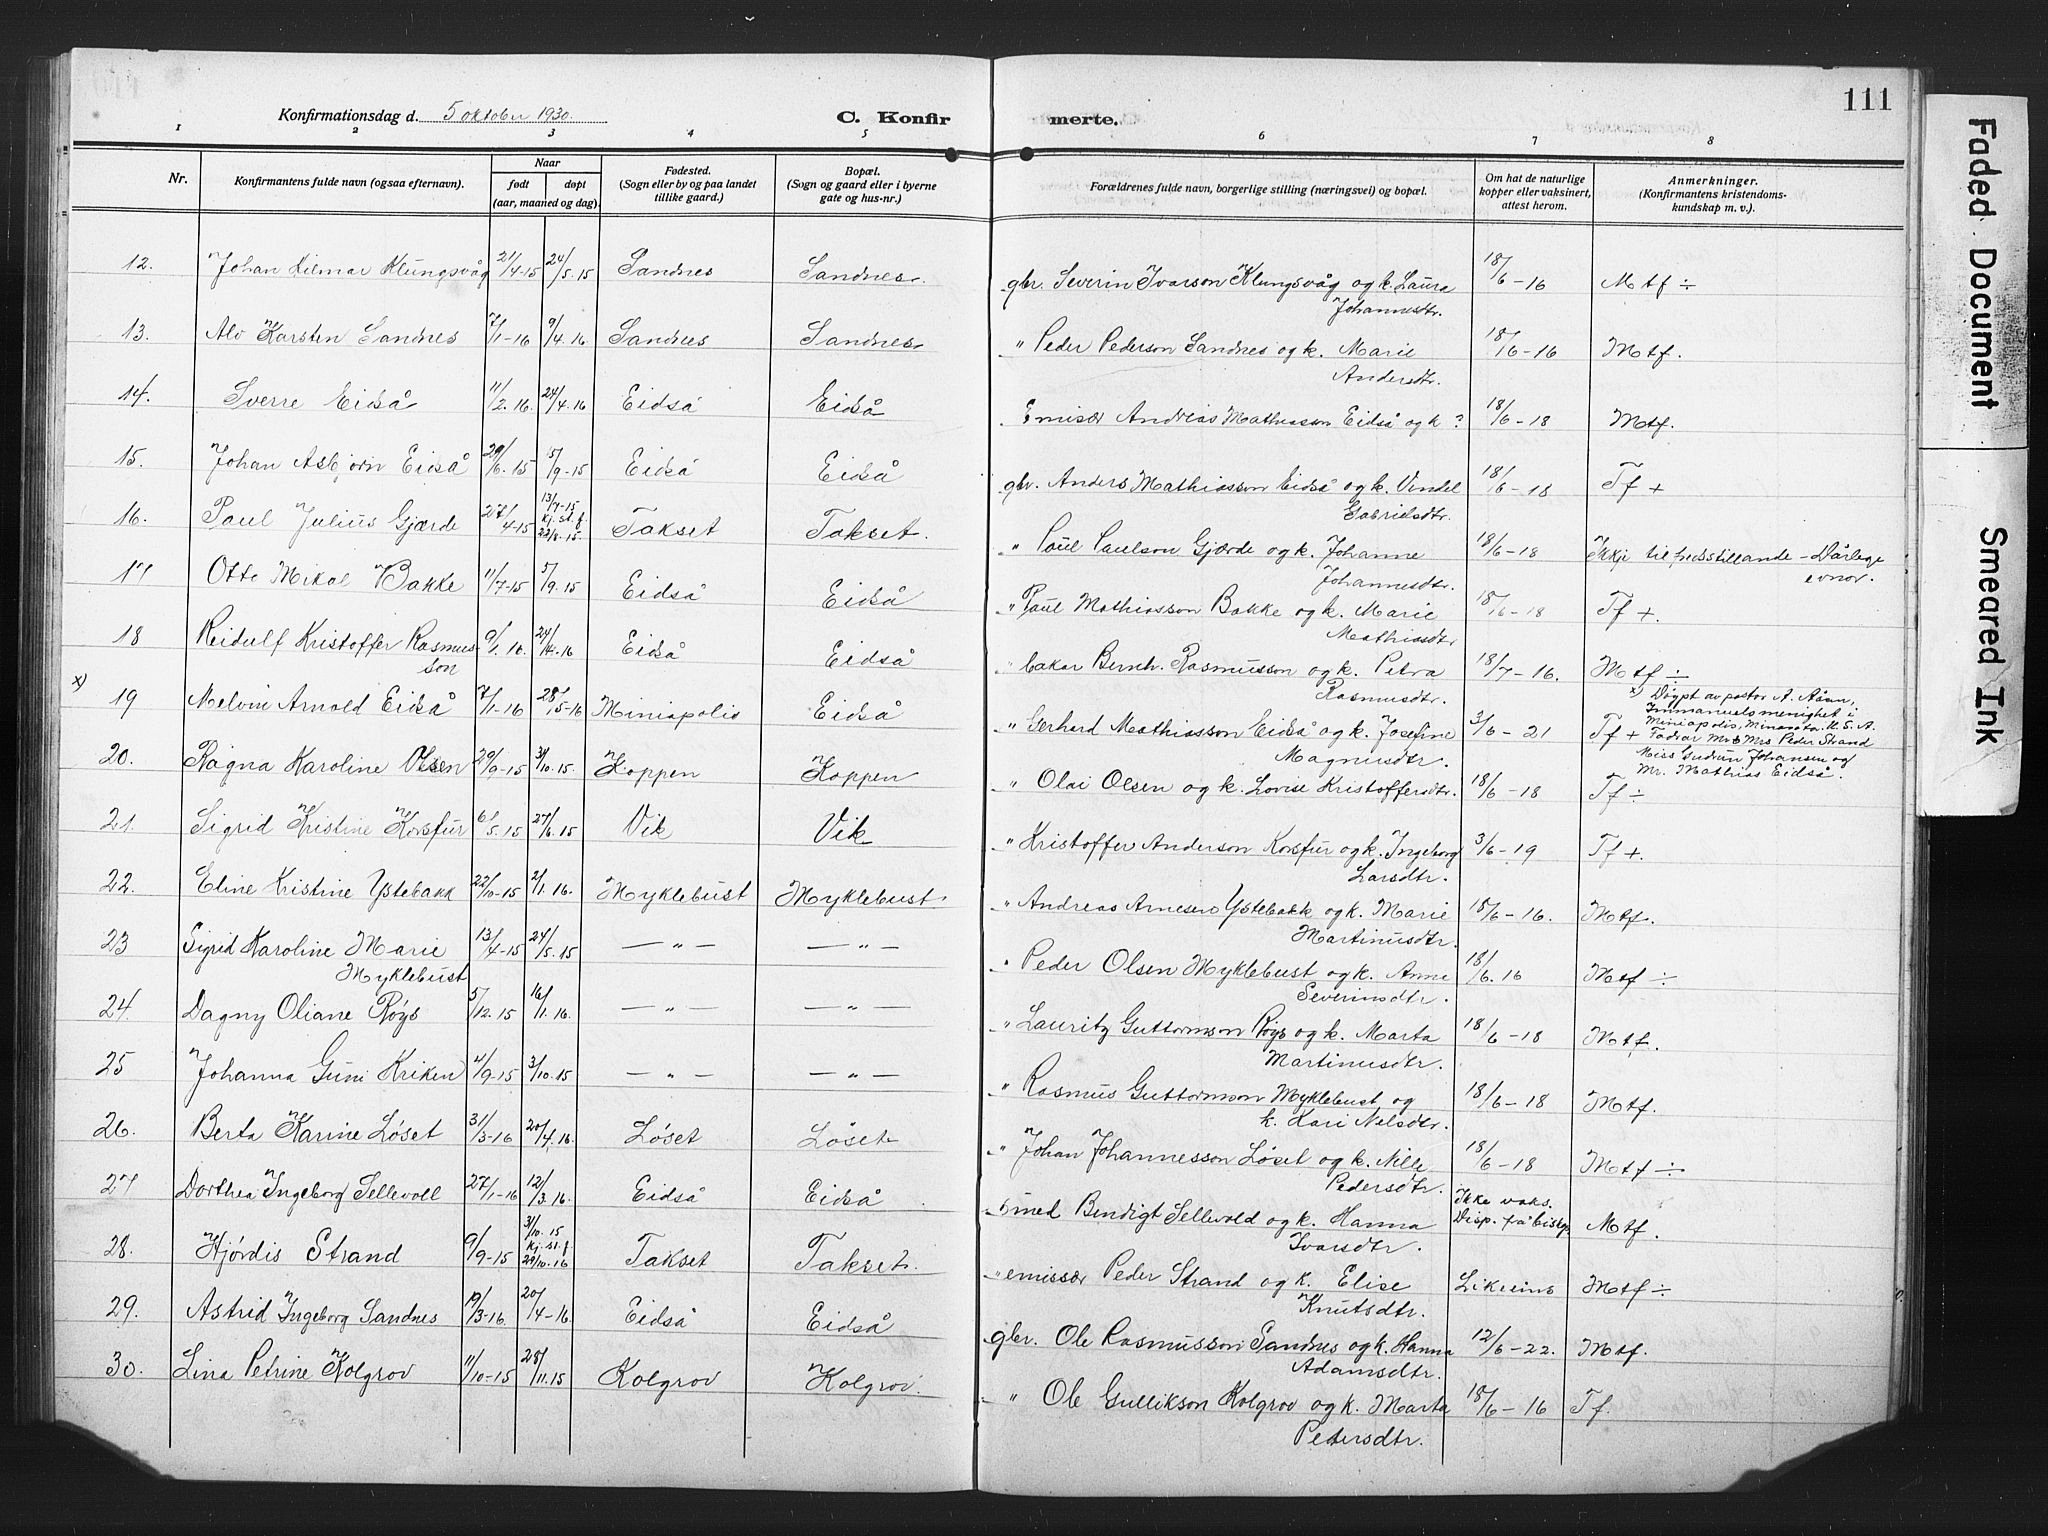 111
Konfirmationsdag d. 5 oktober 1930.
C. Konfirmerte.
1 2 3 4 5 6 7 8
Nr.
Konfirmantens fulde navn (ogsaa efternavn).
Naar
født døpt
(aar, maaned og dag).
Fødested.
(Sogn eller by og paa landet
tillike gaard.)
Bopæl.
(Sogn og gaard eller i byerne
gate og hus-nr.)
Forældrenes fulde navn, borgerlige stilling (næringsvei) og bopæl.
Om hat de naturlige
kopper eller vaksinert,
attest herom.
Anmerkninger.
(Konfirmantens kristendoms-
kundskap m. v.).
12. Johan Hilmar Klungsvåg 21/4-15 24/5.15 Sandnes Sandnes. gbr. Severin Ivarson Klungsvåg og k. Laura 18/6-16 Mtf ÷
Johannesdtr.
13. Alv Karsten Sandnes 7/1-16 9/4.16 Sandnes Sandnes " Peder Pederson Sandnes og k. Marie 18/6-16 Mtf.
Andersdtr.
14. Sverre Eidså 11/2.16. 24/4.16 Eidså Eidså Emisær Andreas Mathiasson Eidså og k ? 18/6-18 Mtf.
15. Johan Asbjørn Eidså 29/6.15 5/9-15 Eidså Eidså gbr. Anders Mathiasson Eidså og k. Vendel 18/6-18 Tf +
Gabrielsdtr.
16. Paul Julius Gjærde 27/4-15 13/7-15 Kj. st. f. 22/8.15 Takset Takset. " Paul Paulson Gjærde og k. Johanne 18/6-18 Ikkje tilfredsstillande - Dårlege
Johannesdtr. evnor.
17 Otto Mikal Bakke 11/7-15 5/9.15 Eidså Eidså " Paul Mathiasson Bakke og k. Marie 18/6-18 Tf +.
Mathiasdtr
18 Reidulf Kristoffer Rasmus- 9/1.16. 24/4.16 Eidså Eidså " bakar Bernh. Rasmusson og k. Petra 18/7-16. Mtf ÷
son Rasmusdtr.
x) 19 Melvin Arnold Eidså 7/1-16 28/5-16 Miniapolis Eidså " Gerhard Mathiasson Eidså og k. Josefine 3/6-21 Tf +
Magnusdtr.
x) Døypt av pastor A. Aasen,
Immanuelsmenighet i
Miniapolis, Minesota. U. S. A.
Fadrar Mr & Mrs Peder Strand
Miss Gudrun Johansen og
Mr. Mathias Eidså.
20. Ragna Karoline Olsen 29/9-15 31/10.15. Koppen Koppen " Olai Olsen og k. Lovise Kristoffersdtr. 18/6-18 Tf ÷
21. Sigrid Kristine Korsfur 6/5.15 27/6.15 Vik Vik " Kristoffer Anderson Korsfur og k. Ingeborg 3/6-19 Tf +.
Larsdtr.
22. Eline Kristine Ystebakk 22/10-15 2/1.16. Myklebust Myklebust. " Andreas Arnesen Ystebakk og k. Marie 18/6-16. Mtf.
Martinusdtr.
23 Sigrid Karoline Marie 13/4-15 24/5.15 — " — — " — " Peder Olsen Myklebust og k. Anne 18/6.16 Mtf ÷
Myklebust Severinsdtr.
24. Dagny Oliane Røys 5/12.15 16/1.16. — " — — " — " Lauritz Guttormson Røys og k. Marta 18/6-18 Mtf.
Martinusdtr.
25 Johanna Guni Kriken 4/9-15 3/10.15 — " — — " — " Rasmus Guttormson Myklebust og 18/6-18 Mtf.
k. Kari Nelsdtr.
26. Berta Karine Løset 31/3-16 20/4.16. Løset Løset " Johan Johannesson Løset og k. Nille 18/6-18 Mtf ÷
Pedersdtr.
27 Dorthea Ingeborg Sellevoll 27/1-16 12/3.16. Eidså Eidså smed Bendigt Sellevold og k. Hanna Ikke vaks. Mtf.
Ivarsdtr. Disp. frå bisp.
28. Hjørdis Strand 9/9-15 31/10.15 Kj. st. f. 29/10.16 Takset Takset. " emissær Peder Strand og k. Elise Likeeins Mtf ÷
Knutsdtr.
29. Astrid Ingeborg Sandnes 19/3-16. 20/4-16. Eidså Eidså gbr. Ole Rasmusson Sandnes og k. Hanna 12/6-22. Mtf.
Adamsdtr.
30. Lina Petrine Kolgrov 11/10-15 28/11.15 Kolgrov Kolgrov. " Ole Gullikson Kolgrov og k. Marta 18/6-16 Tf.
Petersdtr.
Faded Document
Smeared Ink